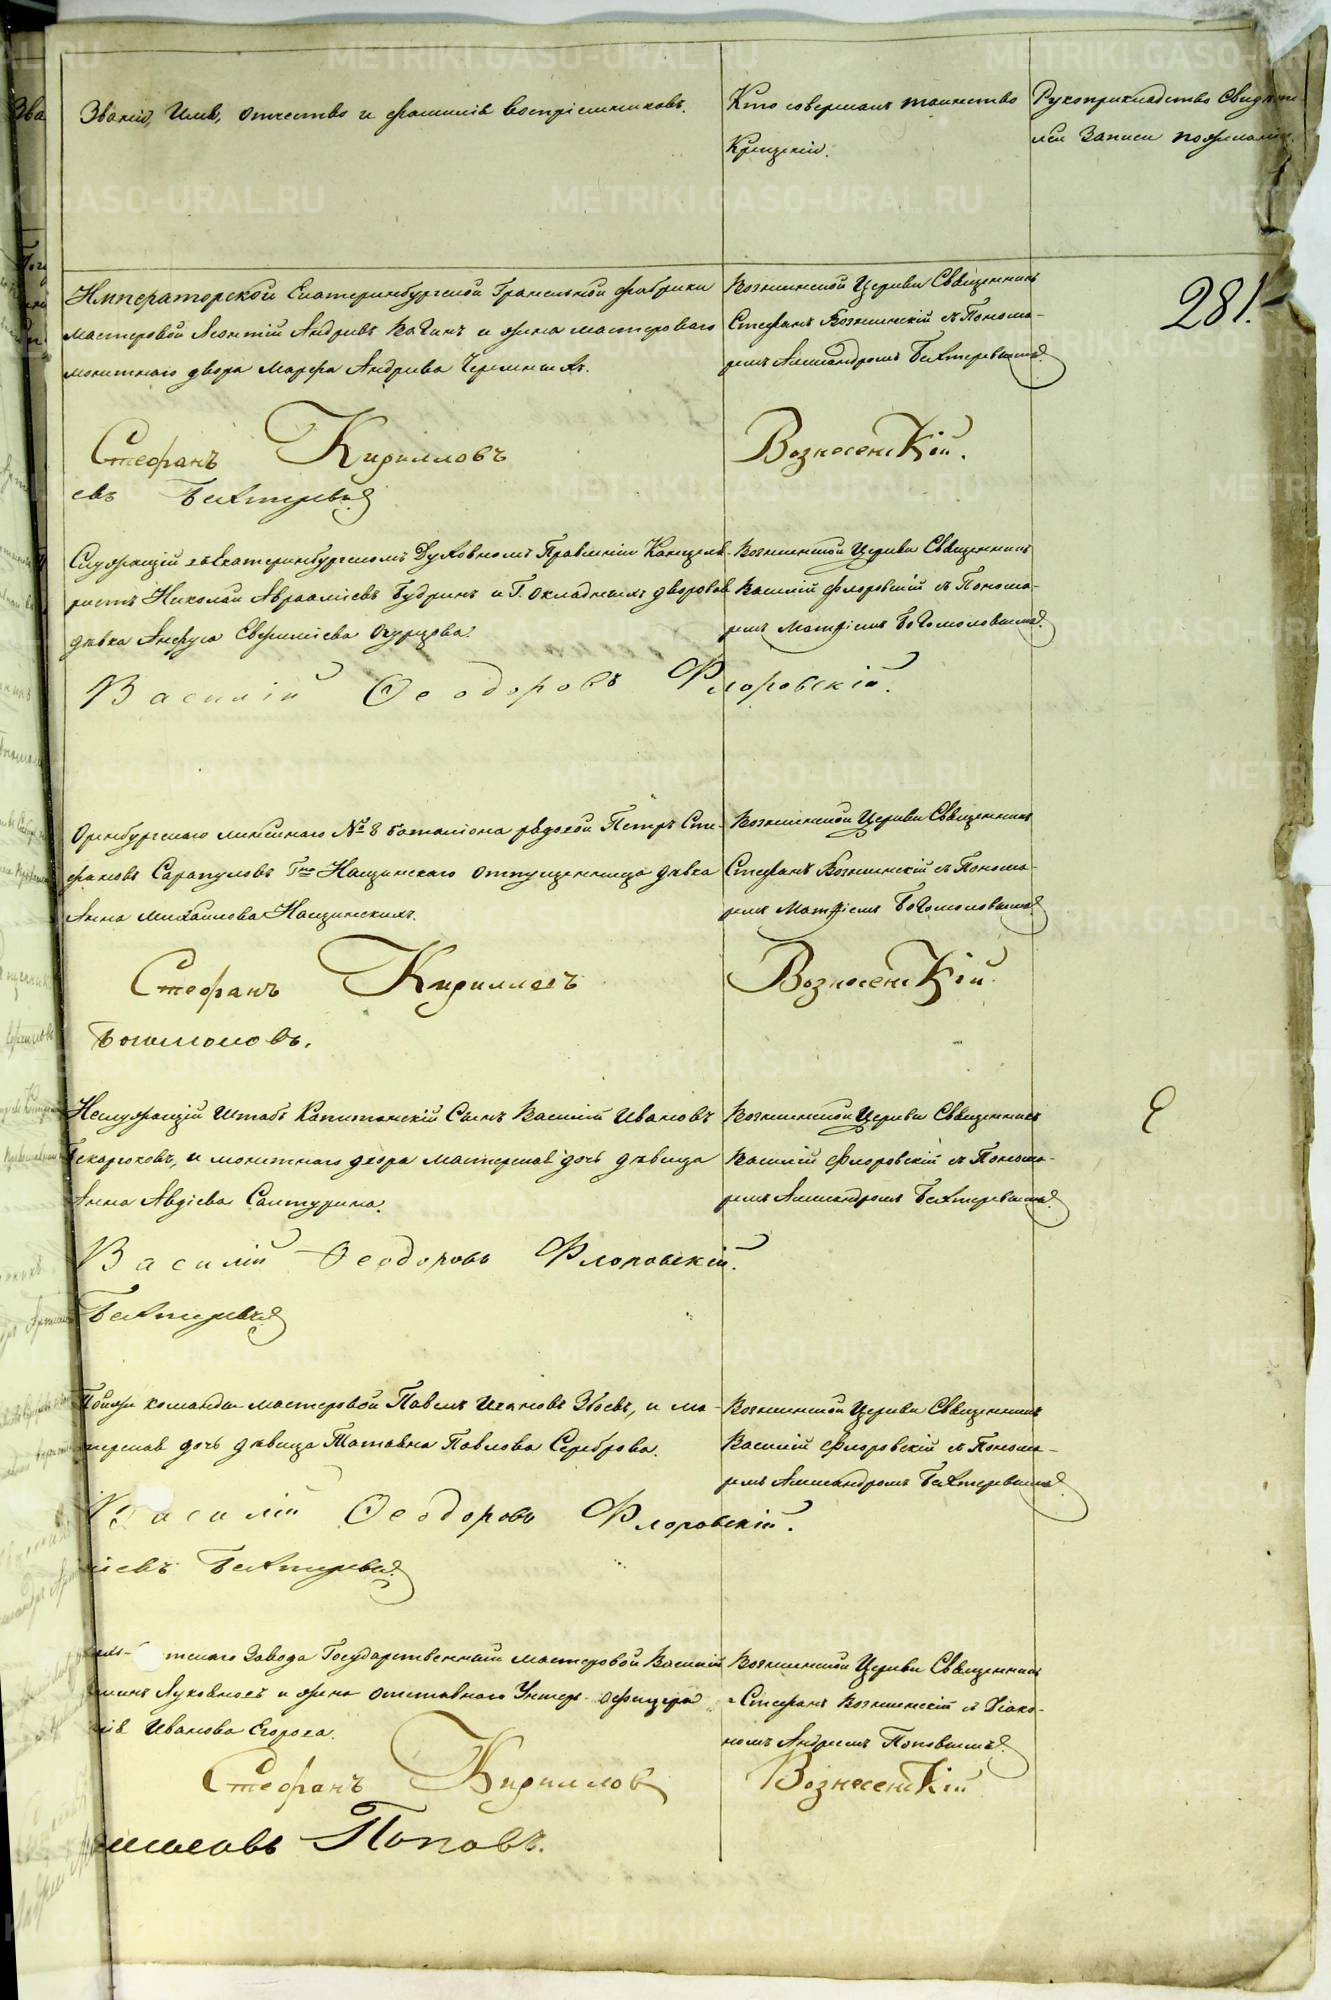 Званіе, Имя, отчество и фамилія воспріемниковъ.
Кто совершалъ таинство
Крещенія.
Рукоприкладство Свидѣте-
лей Записи по желанію.
281.
Императорской Екатеринбургской Гранильной фабрики
мастеровой Леонтій Андреевъ и жена мастероваго
монетнаго двора Марфа Андреева Черемныхъ.
Вознесенской Церкви Священникъ
Стефанъ Вознесенскій съ Понома-
ремъ Александромъ Бехтеревымъ.
Стефанъ Кирилловъ Вознесенскій.
евъ Бехтеревъ
Служащій въ Екатеринбургскомъ Духовномъ Правленіи Канцеля-
ристъ Николай Авраамiевъ Будринъ и Г. дворовая
дѣвка Анфуса Евфиміева Огурцова.
Вознесенской Церкви Священникъ
Василій Флоровскій съ Понома-
ремъ Матфіемъ Богомоловымъ.
Василій Феодоровъ Флоровскій.
Оренбургскаго линейнаго № 8 баталіона рядовой Петръ Сте-
фановъ Сарапуловъ дѣвка
Анна Михайлова
Вознесенской Церкви Священникъ
Стефанъ Вознесенскій съ Понома-
ремъ Матфіемъ Богомоловымъ.
Стефанъ Кирилловъ Вознесенскій.
Богомоловъ.
Неслужащій Штабъ Капитанскій Сынъ Василій Ивановъ
и монетнаго двора мастерская дочь дѣвица
Анна Авдіева Сантурина.
Вознесенской Церкви Священникъ
Василій Флоровскій съ Понома-
ремъ Александромъ Бехтеревымъ.
Василій Феодоровъ Флоровскій.
Бехтеревъ
команды мастеровой Павелъ Ивановъ Зобевъ, и ма-
стерская дочь дѣвица Татьяна Павлова Сереброва.
Вознесенской Церкви Священникъ
Василій Флоровскій съ Понома-
ремъ Александромъ Бехтеревымъ.
Василій Феодоровъ Флоровскій.
Бехтеревъ
Завода Государственный мастеровой Василій
и жена отставнаго Унтеръ-офицера
Иванова Егорова.
Вознесенской Церкви Священникъ
Стефанъ Вознесенскій съ Діако-
номъ Андреемъ Поповымъ.
Стефанъ Кирилловъ Вознесенскій
Поповъ.
METRIKI.GASO-URAL.RU